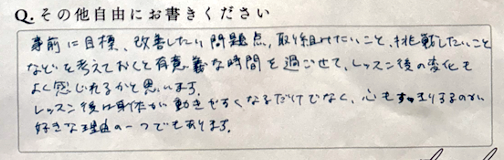 Q.その他自由にお書きください
事前に目標、改善したい問題点、取り組みたいこと、挑戦したいこと
などを考えておくと有意義な時間を過ごせて、レッスン後の変化も
よく感じれるかと思います。
レッスン後は身体が動きやすくなるだけでなく、心もすっきりするのが
好きな理由の一つでもあります。